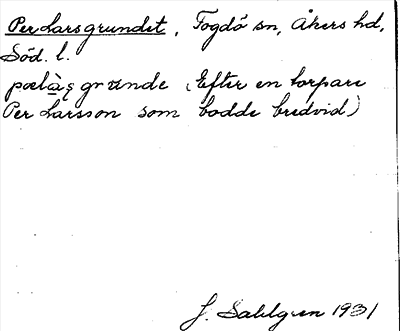 Per Larsgrundet, Fogdö sn, Åkers hd,
Söd. l.
(Efter en torpare
Per Larsson som bodde bredvid)
J. Sahlgren 1931